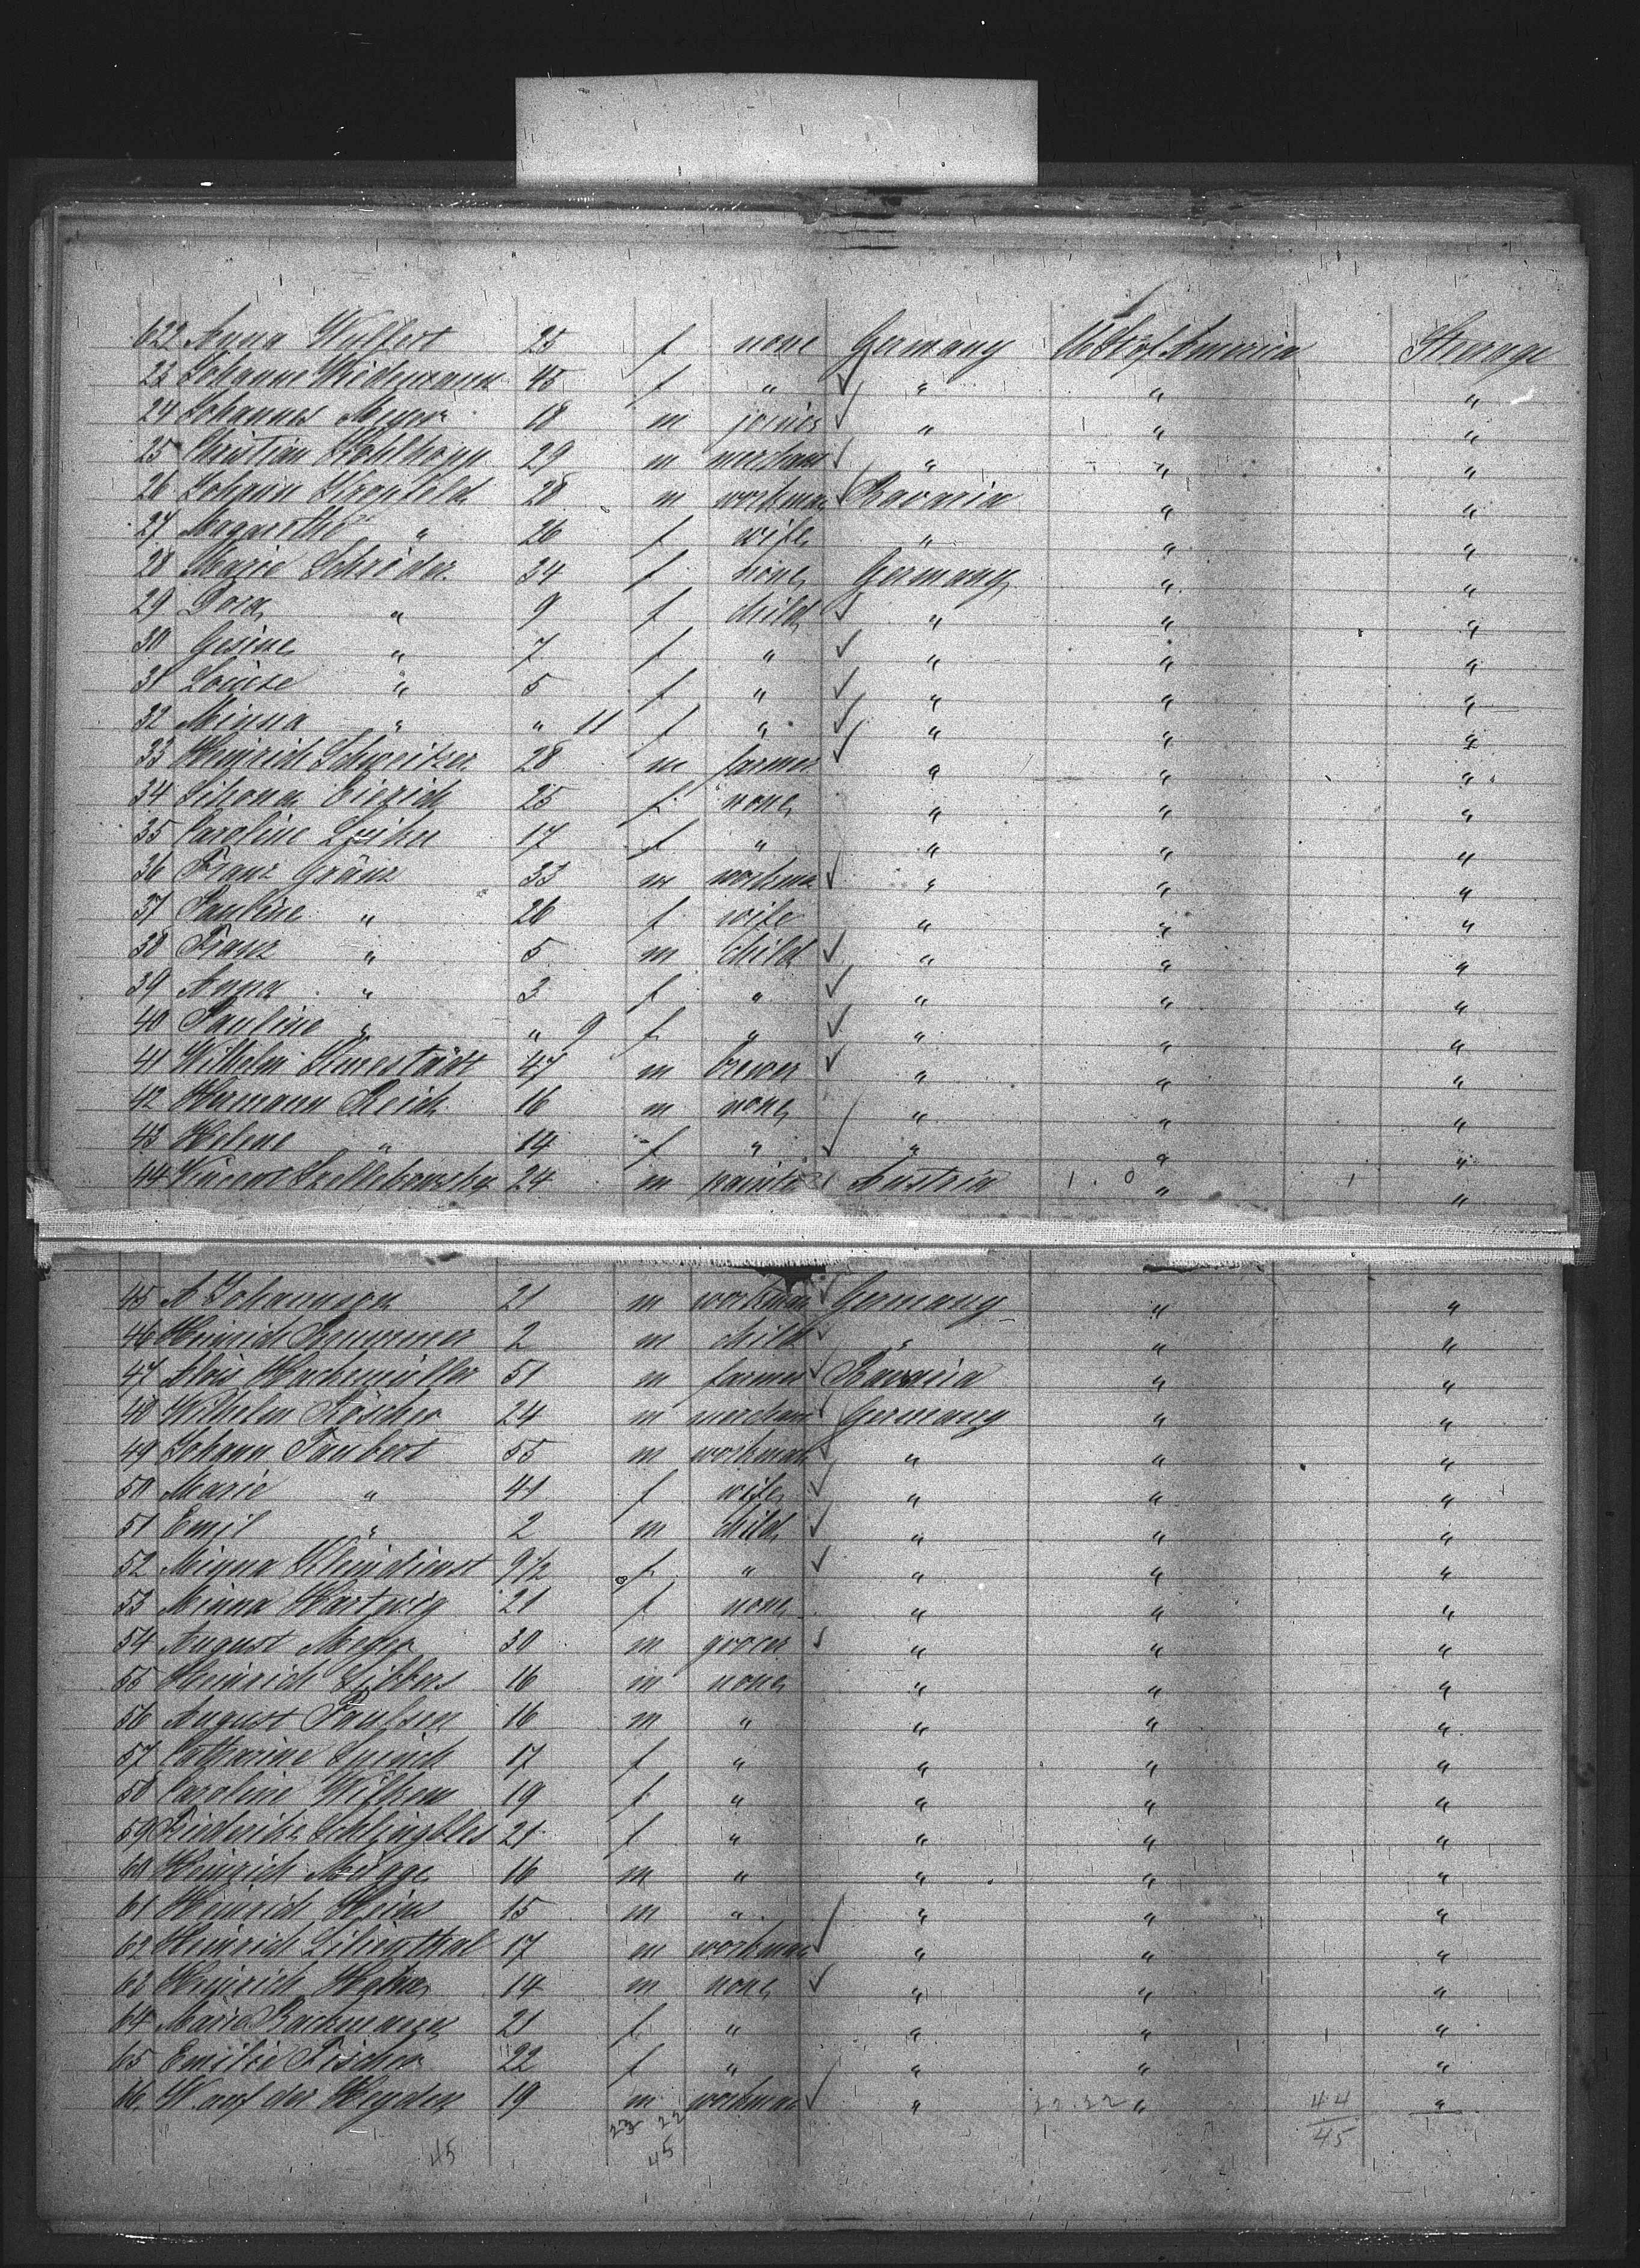 622 Anna Wulfert 25 f none Germany U St of America Steerage
23 Johanne Wiedemann 45 f " " " "
24 Johannes Meyer 18 m joiner " " "
25 Christian Kohlhopp 29 m merchant " " "
26 Johann 28 m workman Bavaria " "
27 Margarethe " 26 f wife " " "
28 Marie Schröder 34 f none Germany " "
29 Dora " 9 f child " " "
30 Gesine " 7 f " " " "
31 Louise " 5 f " " " "
32 Minna " " 11 f " " " "
33 Heinrich Schweitzer 28 m farmer " " "
34 25 f none " " "
35 Caroline 17 f " " " "
36 Franz Gränz 33 m workman " " "
37 Pauline " 26 f wife " " "
38 Franz " 5 m child " " "
39 Anna " 3 f " " " "
40 Pauline " " 9 f " " " "
41 Wilhelm 47 m brewer " " "
42 Hermann Reich 16 m none " " "
43 Helene " 14 f " " " "
44 Vincent 24 m painter Austria " "
45 A Johannsen 21 m workman Germany " "
46 Heinrich 2 m child " " "
47 Alois 51 m farmer Bavaria " "
48 Wilhelm Röscher 24 m merchant Germany " "
49 Johann Taubert 55 m workman " " "
50 Marie " 41 f wife " " "
51 Emil " 2 m child " " "
52 Minna Kleindienst 9 1/2 f " " " "
53 Minna Hartwig 21 f none " " "
54 August Meyer 30 m grocer " " "
55 Heinrich Libbers 16 m none " " "
56 August Paulsen 16 m " " " "
57 Catharine 17 f " " " "
58 Caroline Wilkens 19 f " " " "
59 Friederike 21 f " " " "
60 Heinrich Mügge 16 m " " " "
61 Heinrich Heins 15 m " " " "
62 Heinrich Lilienthal 17 m workman " " "
63 Heinrich 14 m none " " "
64 Marie Backmann 21 f " " " "
65 Emilie Fischer 22 f " " " "
66 W. auf der Heyden 19 m workman " " "
23 22 22.22 44
45 45 45